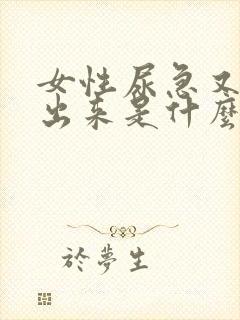 女性尿急又
出来是什麽
於夢生